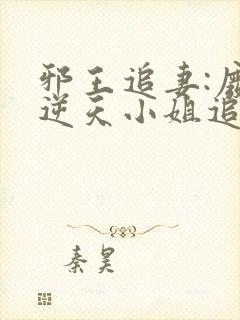 邪王追妻:
逆天小姐追
秦昊